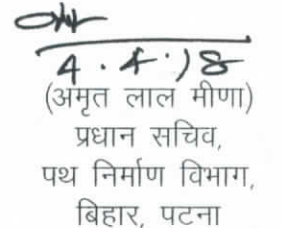 4.4.18
(अमृत लाल मीणा)
प्रधान सचिव,
पथ निर्माण विभाग,
बिहार, पटना